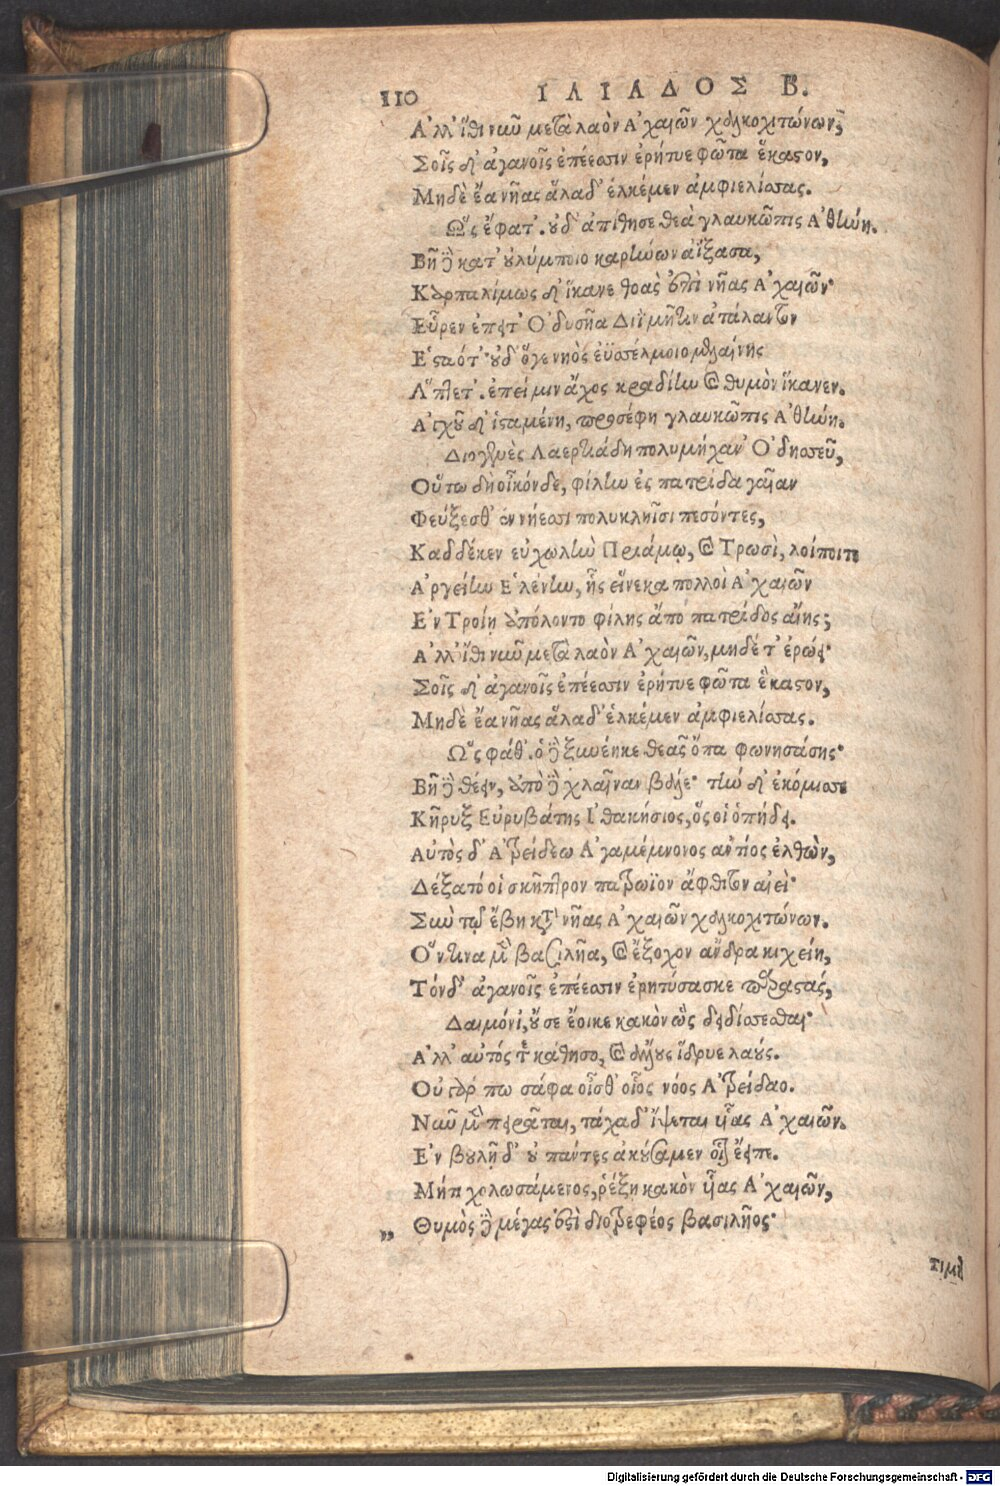 110 ΙΛΙΑΔΟΣ Β.
Ἀλλ' ἴθι νῦν μετὰ λαὸν Ἀχαιῶν χαλκοχιτώνων,
Σοῖς δ' ἀγανοῖς ἐπέεσσιν ἐρήτυε φῶτα ἕκαστον,
Μηδὲ ἔα νῆας ἅλαδ' ἑλκέμεν ἀμφιελίσσας.
Ὣς ἔφατ'. οὐδ' ἀπίθησε θεὰ γλαυκῶπις Ἀθήνη.
Βῆ δὲ κατ' οὐλύμποιο καρήνων ἀΐξασα,
Καρπαλίμως δ' ἵκανε θοὰς ἐπὶ νῆας Ἀχαιῶν·
Εὗρεν ἔπειτ' Ὀδυσῆα Διῒ μῆτιν ἀτάλαντον
Ἑσταότ'· οὐδ' ὅγε νηὸς ἐϋσσέλμοιο μελαίνης
Ἅπτετ'. ἐπεί μιν ἄχος κραδίην καὶ θυμὸν ἵκανεν.
Ἀγχοῦ δ' ἱσταμένη, προσέφη γλαυκῶπις Ἀθήνη.
Διογενὲς Λαερτιάδη πολυμήχαν' Ὀδυσσεῦ,
Οὕτω δὴ οἶκόνδε, φίλην ἐς πατρίδα γαῖαν
Φεύξεσθ' ἐν νήεσσι πολυκληῖσι πεσόντες,
Καδδέκεν εὐχωλὴν Πριάμῳ, καὶ Τρωσὶ, λοίποιτε
Ἀργείην Ἑλένην, ἧς εἵνεκα πολλοὶ Ἀχαιῶν
Ἐν Τροίῃ ἀπόλοντο φίλης ἄπο πατρίδος αἴης;
Ἀλλ' ἴθι νῦν μετὰ λαὸν Ἀχαιῶν, μηδέ τ' ἐρώει·
Σοῖς δ' ἀγανοῖς ἐπέεσσιν ἐρήτυε φῶτα ἕκαστον,
Μηδὲ ἔα νῆας ἅλαδ' ἑλκέμεν ἀμφιελίσσας.
Ὣς φάθ'. ὁ δὲ ξυνέηκε θεᾶς ὄπα φωνησάσης·
Βῆ δὲ θέειν, ἀπὸ δὲ χλαῖναν βάλε· τὴν δ' ἐκόμισσε
Κῆρυξ Εὐρυβάτης Ἰθακήσιος, ὅς οἱ ὀπήδει.
Αὐτὸς δ' Ἀτρείδεω Ἀγαμέμνονος ἀντίος ἐλθὼν,
Δέξατό οἱ σκῆπτρον πατρώϊον ἄφθιτον αἰεὶ·
Σὺν τῷ ἔβη κατὰ νῆας Ἀχαιῶν χαλκοχιτώνων.
Ὅντινα μὲν βασιλῆα, καὶ ἔξοχον ἄνδρα κιχείη,
Τόνδ' ἀγανοῖς ἐπέεσσιν ἐρητύσασκε παραστάς,
Δαιμόνι', οὔ σε ἔοικε κακὸν ὣς δειδίσσεσθαι·
Ἀλλ' αὐτός τε κάθησο, καὶ ἄλλους ἵδρυε λαούς.
Οὐ γάρ πω σάφα οἶσθ' οἷος νόος Ἀτρείδαο.
Νῦν μὲν πειρᾶται, τάχα δ' ἴψεται υἷας Ἀχαιῶν.
Ἐν βουλῇ δ' οὐ πάντες ἀκούσαμεν οἷον ἔειπε.
Μήτι χολωσάμενος, ῥέξῃ κακὸν υἷας Ἀχαιῶν,
„ Θυμὸς δὲ μέγας ἐστὶ διοτρεφέος βασιλῆος·
Digitalisierung gefördert durch die Deutsche Forschungsgemeinschaft - DFG